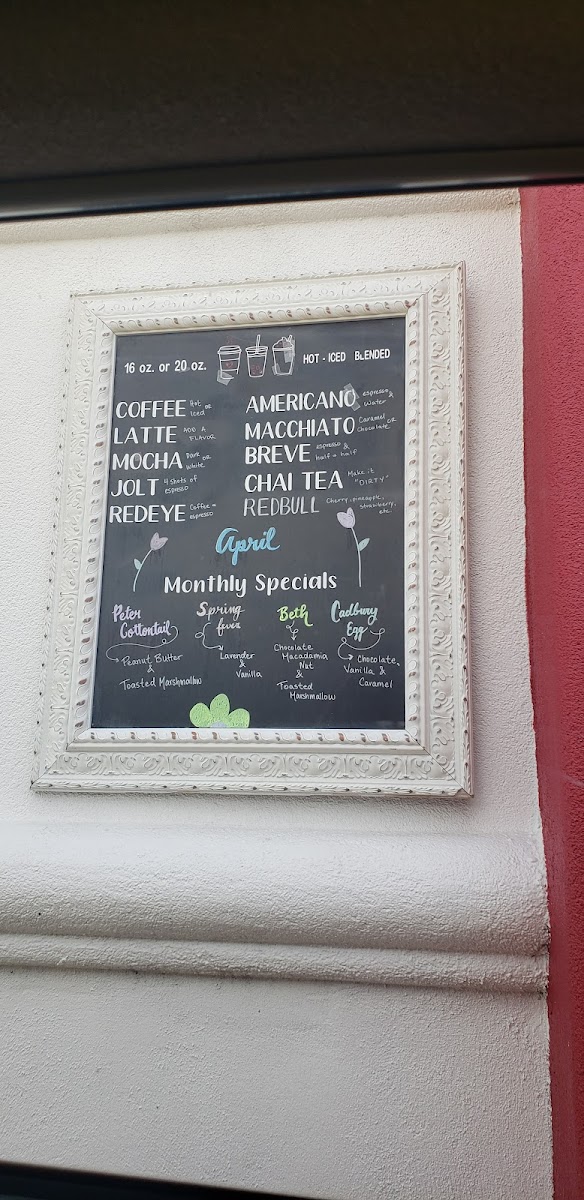 16 oz. or 20 oz.
HOT - ICED BLENDED
COFFEE Hot or Iced
LATTE ADD A FLAVOR
MOCHA Dark or white
JOLT 4 Shots of espresso
REDEYE Coffee + espresso
AMERICANO espresso & Water
MACCHIATO Caramel or Chocolate
BREVE espresso & half + half
CHAI TEA Make it "DIRTY"
REDBULL Cherry, pineapple, strawberry, etc.
April
Monthly Specials
Peter
Cottontail
Peanut Butter
&
Toasted Marshmallow
Spring
fever
Lavender
&
Vanilla
Beth
Chocolate
Macadamia
Nut
&
Toasted
Marshmallow
Cadbury
Egg
Chocolate,
Vanilla &
Caramel